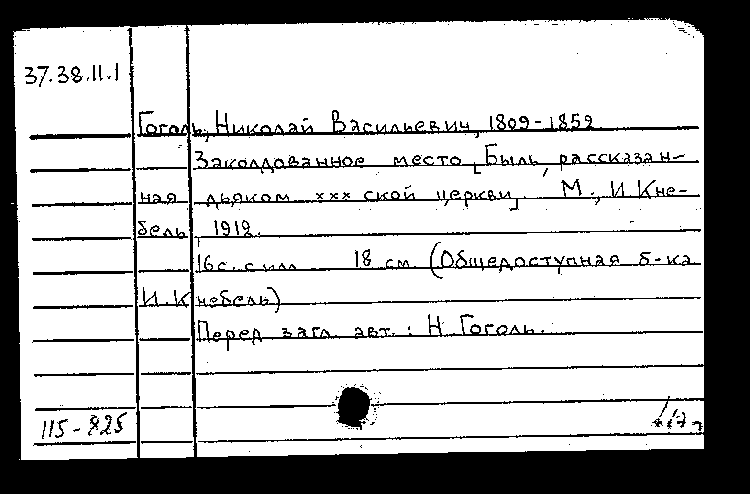 37.38.11.1
Гоголь, Николай Васильевич, 1809-1852
Заколдованное место [Быль, рассказан-
ная дьяком ххх ской церкви]. М., И. Кне-
бель, 1912.
16 с. с илл 18 см (Общедоступная б-ка
И. Кнебель)
Перед загл. авт.: Н. Гоголь.
115-825